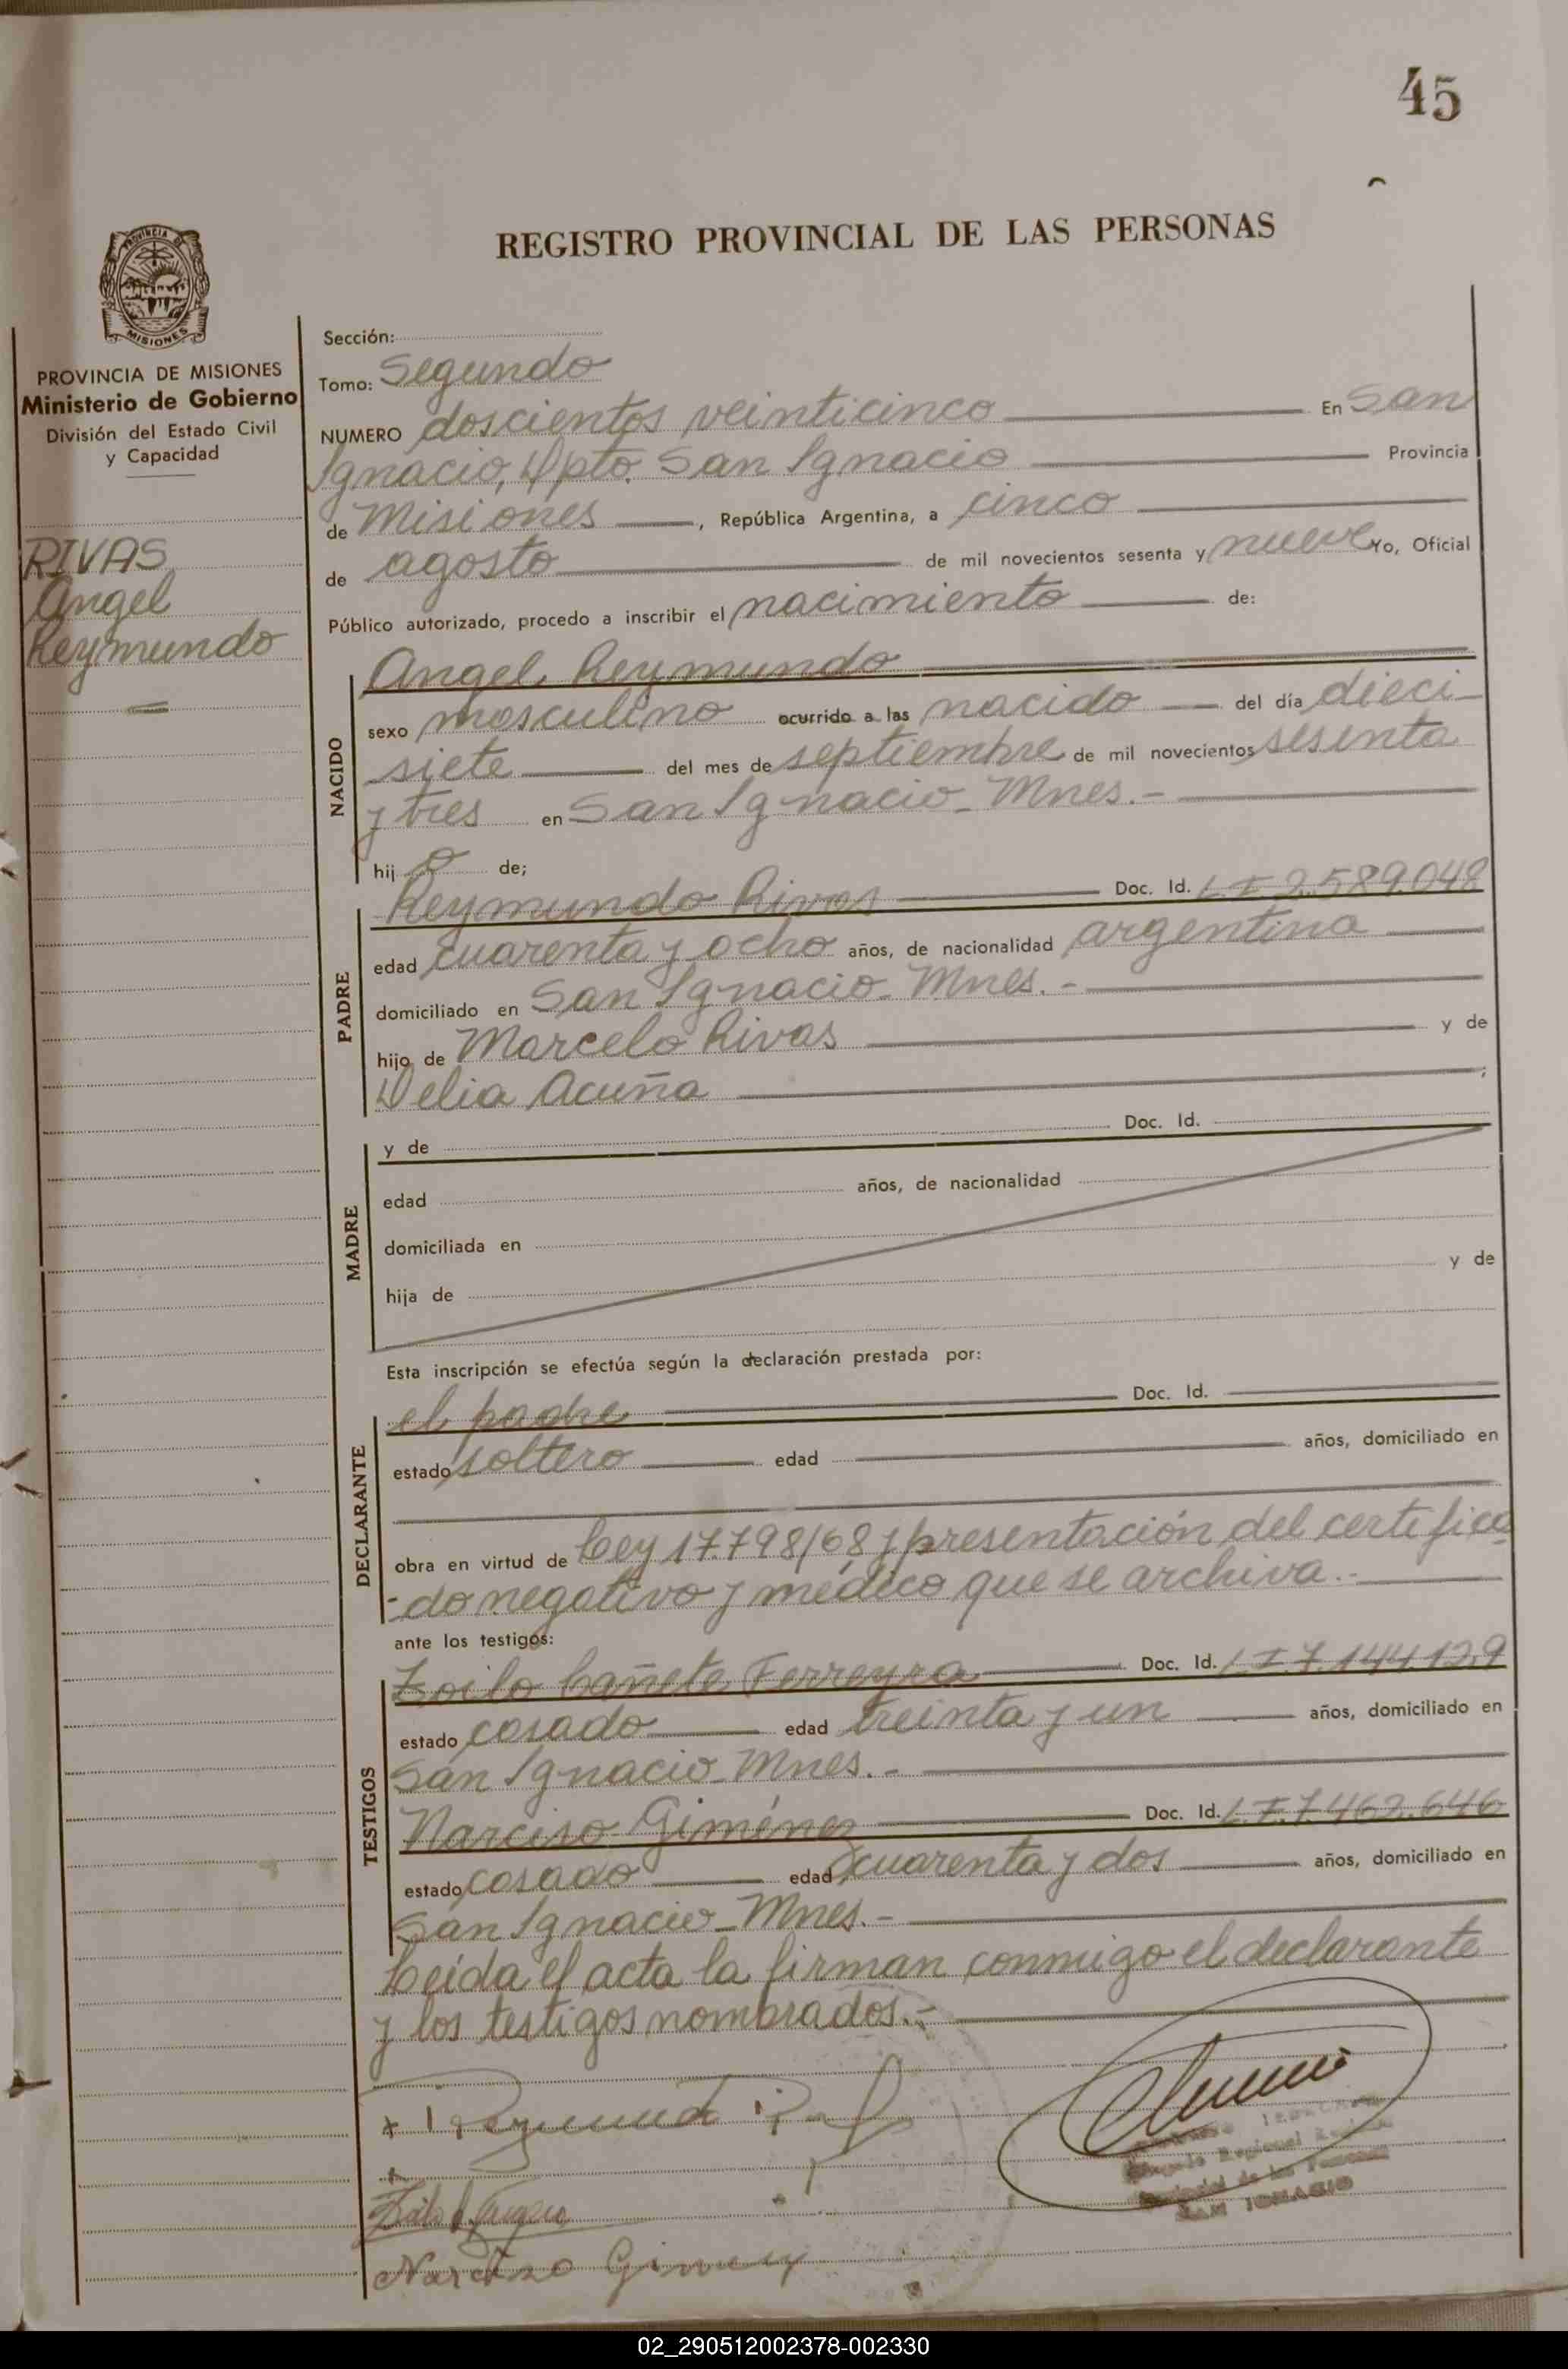 45
REGISTRO PROVINCIAL DE LAS PERSONAS
PROVINCIA DE
MISIONES
PROVINCIA DE MISIONES
Ministerio de Gobierno
División del Estado Civil
y Capacidad
RIVAS
Angel
Reymundo
Sección:
Tomo: Segundo
NUMERO doscientos veinticinco En San
Ignacio, Dpto. San Ignacio Provincia
de Misiones, República Argentina, a cinco
de agosto de mil novecientos sesenta y nueve Yo, Oficial
Público autorizado, procedo a inscribir el nacimiento de:
NACIDO
Angel Reymundo
sexo masculino ocurrido a las nacido del día dieci-
siete del mes de septiembre de mil novecientos sesenta
y tres en San Ignacio - Mnes.-
hij o de;
PADRE
Reymundo Rivas Doc. Id. L I 2.589.048
edad cuarenta y ocho años, de nacionalidad argentina
domiciliado en San Ignacio - Mnes.-
hijo de Marcelo Rivas y de
Delia Acuña ;
MADRE
y de Doc. Id.
edad años, de nacionalidad
domiciliada en
hija de y de
Esta inscripción se efectúa según la declaración prestada por:
DECLARANTE
el padre Doc. Id.
estado soltero edad años, domiciliado en
obra en virtud de Ley 17.798/68 y presentación del certifica
-do negativo y médico que se archiva.-
ante los testigos:
TESTIGOS
Zoilo Cañete Ferreyra Doc. Id. L I 7.144.129
estado casado edad treinta y un años, domiciliado en
San Ignacio - Mnes.-
Narciso Giménez Doc. Id. L I 7.462.646
estado casado edad cuarenta y dos años, domiciliado en
San Ignacio - Mnes.-
Leída el acta la firman conmigo el declarante
y los testigos nombrados.-
Reymundo
Regional
de las Personas
SAN IGNACIO
Narcizo Gimenez
02_290512002378-002330